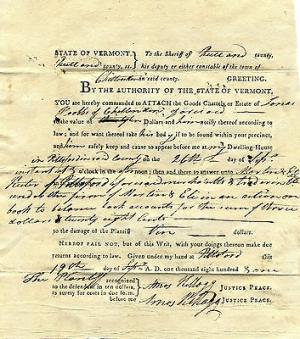 STATE OF VERMONT, To the Sheriff of Rutland county,
Rutland county, ss. his deputy or either constable of the town of
Chittenden in said county. GREETING.
BY THE AUTHORITY OF THE STATE OF VERMONT,
YOU are hereby commanded to ATTACH the Goods Chattels or Estate of
of Chittenden
to the value of Dollars and him notify thereof according to
law; and for want thereof take his body if to be found within your precinct,
and him safely keep and cause to appear before me at my Dwelling-House
in Pittsford in said county on the 26th of Sept
instant at o'clock in the afternoon; then and there to answer to
of Pittsford
under the firm of in an action on
book to ballance book accounts for the sum of three
dollars & twenty eight cents
to the damage of the Plaintiff dollars.
HEREOF FAIL NOT, but of this Writ, with your doings thereon make due
returns according to law. Given under my hand at Pittsford this
19th day of Sept A. D. one thousand eight hundred &
The Plaintiff recognized Amos Kellogg JUSTICE PEACE.
to the defendant in ten dollars,
to surety for costs in due form,
before me Amos Kellogg JUSTICE PEACE.